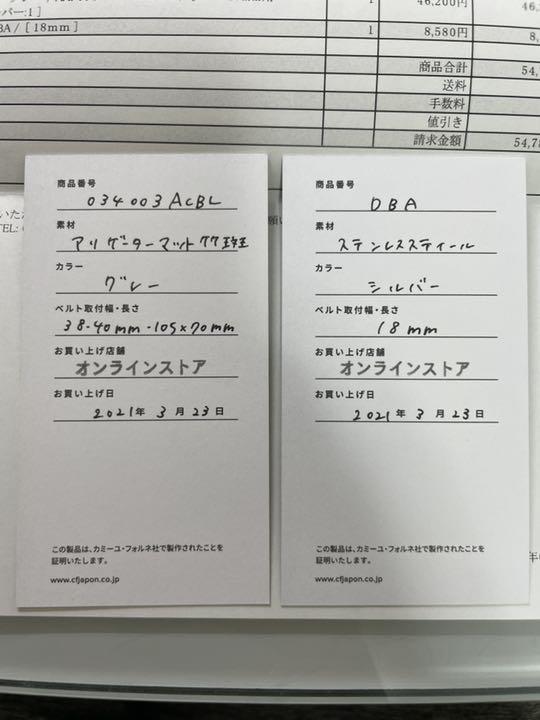 1 46,200円 46,
ンバー:1 ]
BA / [ 18mm ] 1 8,580円 8,
商品合計 54,
送料
手数料
値引き
請求金額 54,78
商品番号
034003ACBL
素材
アリゲーターマット
カラー
グレー
ベルト取付幅・長さ
38-40mm-105×70mm
お買い上げ店舗
オンラインストア
お買い上げ日
2021年 3月 23日
この製品は、カミーユ・フォルネ社で製作されたことを
証明いたします。
www.cfjapon.co.jp
商品番号
DBA
素材
ステンレススティール
カラー
シルバー
ベルト取付幅・長さ
18mm
お買い上げ店舗
オンラインストア
お買い上げ日
2021年 3月 23日
この製品は、カミーユ・フォルネ社で製作されたことを
証明いたします。
www.cfjapon.co.jp